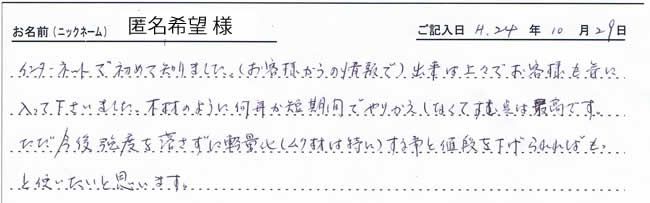 お名前(ニックネーム) 匿名希望 様 ご記入日 H.24 年 10 月 29 日
インターネットで初めて知りました。(お客様からの情報で)出来は上々でお客様も気に
入って下さいました。木材のように何年か短期間でやりかえしなくてすむ点は最高です。
ただ今後強度を落さずに軽量化(ムク材は特に)する事と値段を下げられればもっ
と使いたいと思います。